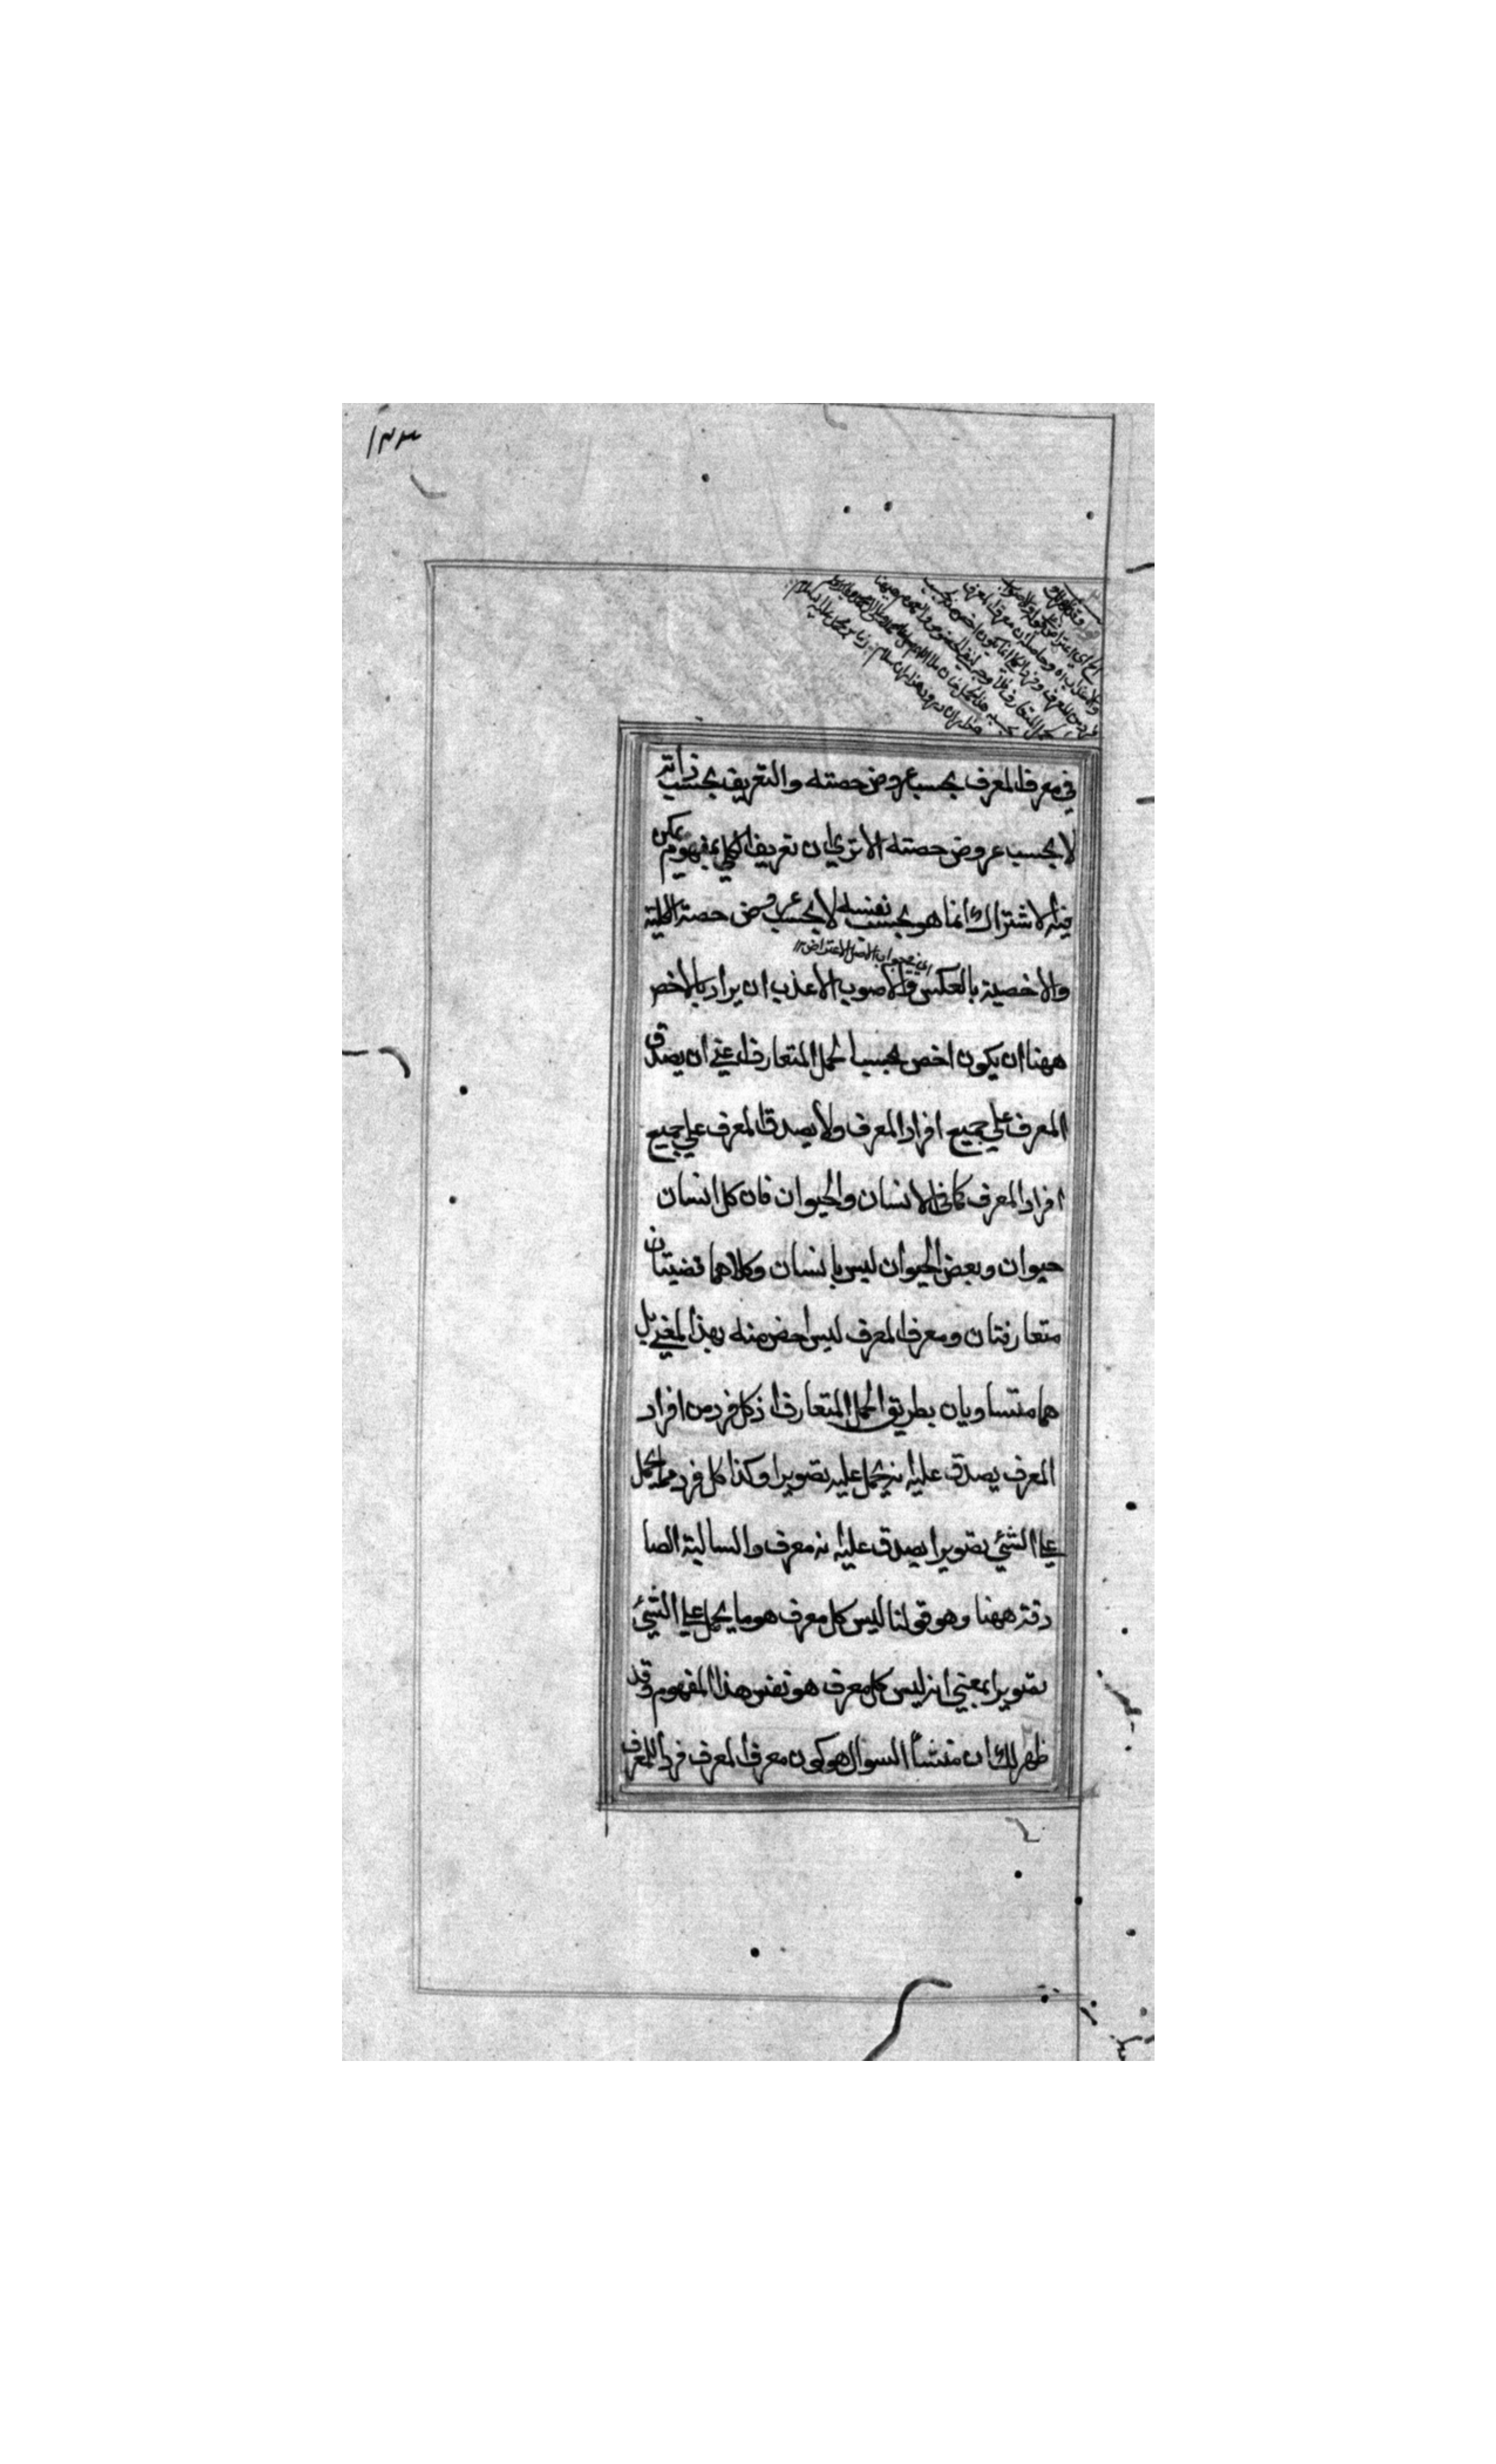 ١٣٣
في معرف المعرف بحسب عروض حصته والتعريف بحسب ذاته
لا بحسب عروض حصته الا تري ان تعريف الكلي بمفهوم يمكن
فيه الاشتراك انما هو بحسب نفسه لا بحسب عروض حصة الكلية
اي في جواب اصل الاعتراض ١٢
والاخصية بالعكس والاصوب الاعذب ان يراد بالاخص
ههنا ان يكون اخص بحسب الحمل المتعارف اعني ان يصدق
المعرف علي جميع افراد المعرف ولا يصدق المعرف علي جميع
افراد المعرف كما في الانسان والحيوان فان كل انسان
حيوان وبعض الحيوان ليس بانسان وكلاهما قضيتان
متعارفتان ومعرف المعرف ليس اخص منه بهذا المعني بل
هما متساويان بطريق الحمل المتعارف اذ كل فرد من افراد
المعرف يصدق عليه انه يحمل عليه تصويرا وكذا كل فرد مما يحمل
علي الشئي تصويرا يصدق عليه انه معرف والسالبة الصا
دقة ههنا وهو قولنا ليس كل معرف هو ما يحمل علي الشئي
تصويرا بمعني انه ليس كل معرف هو نفس هذا المفهوم وقد
ظهر لك ان منشأ السوال هو كون معرف المعرف فردا للمعرف